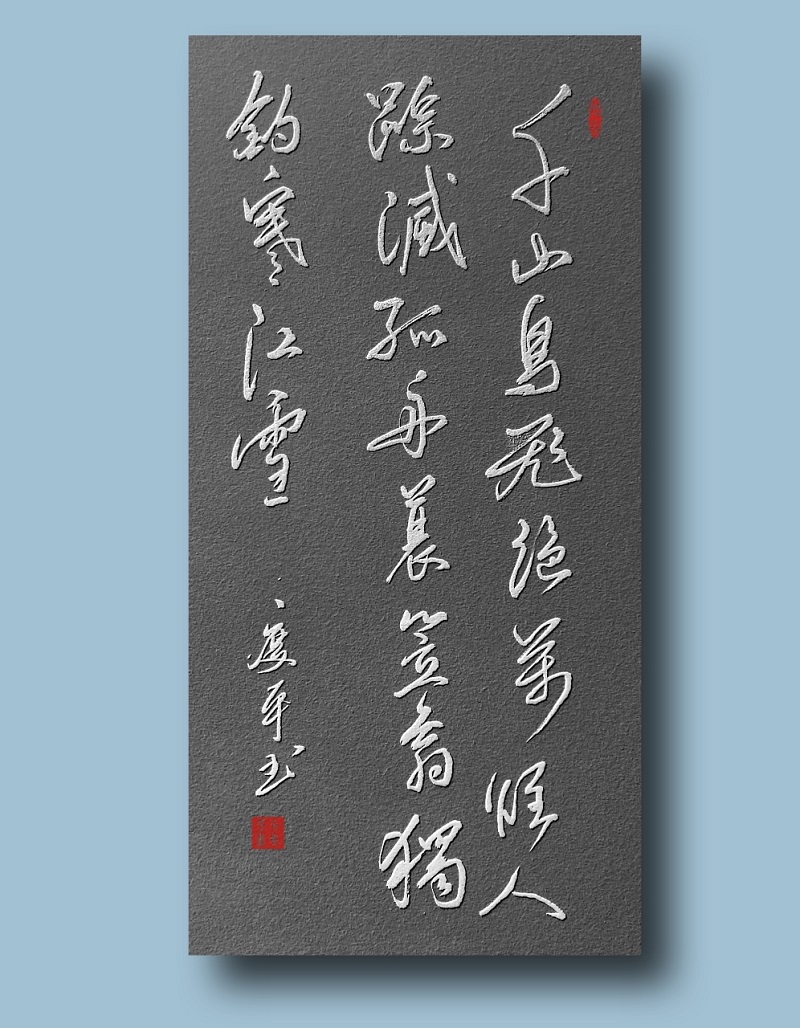 千山鳥飛絶萬徑人
踪滅孤舟蓑笠翁獨
釣寒江雪
平书